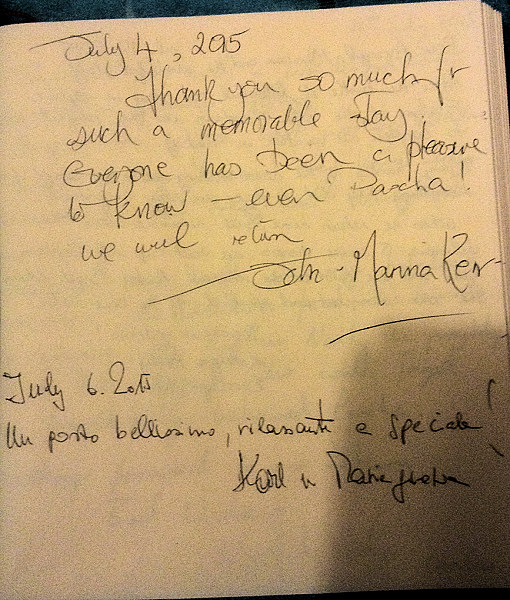 July 4, 2015
Thank you so much fr
such a memorable stay.
Everyone has been a pleasure
to know – even Pascha!
we will return
John - Marina Kerr
July 6. 2015
Un posto bellissimo, rilassante e speciale!
Karl u